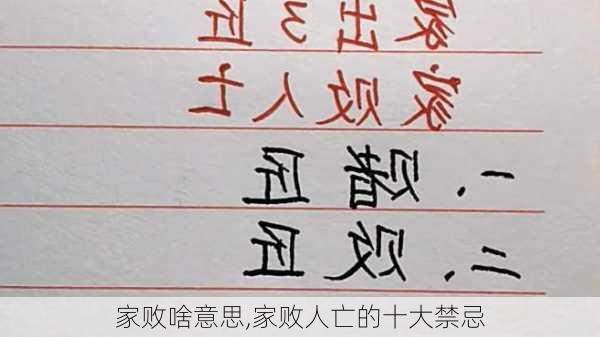 家出3匠
家败人亡
一、赌匠
二、败匠
家败啥意思,家败人亡的十大禁忌